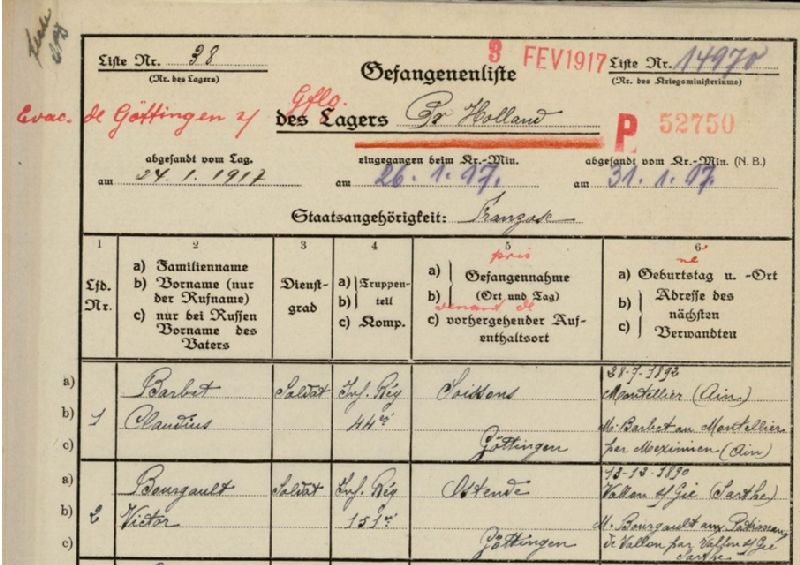 Liste Nr. 38
(Nr. des Lagers)
3 FEV 1917
Liste Nr. 14970
(Nr. des Kriegsministeriums)
Gefangenenliste
Evac. de Göttingen s/
Gflg.
des Lagers Pr Holland
P 52750
abgesandt vom Lag.
am 24.1.1917
eingegangen beim Kr.-Min.
am 26.1.17.
abgesandt vom Kr.-Min. (N.B.)
am 31.1.17.
Staatsangehörigkeit: Franzose
1
Lfd.
Nr.
2
a) Familienname
b) Vorname (nur
der Rufname)
c) nur bei Russen
Vorname des
Vaters
3
Dienst-
grad
4
a) Truppen-
b) teil
c) Komp.
5
pris
a) Gefangennahme
b) (Ort und Tag)
venant de
c) vorhergehender Auf-
enthaltsort
6
né
a) Geburtstag u. -Ort
b) Adresse des
c) nächsten
Verwandten
a)
b)
c)
1
Barbet
Claudius
Soldat
Inf. Rég
44
Soissons
Göttingen
Montellier (Ain)
M. Barbet au Montellier
par Meximieu (Ain)
a)
b)
c)
2
Bourgault
Victor
Soldat
Inf. Rég
151
Ostende
Göttingen
13-12-1890
Vallon s/Gée (Sarthe)
M. Bourgault aux
de Vallon par Vallon s/Gée
Sarthe